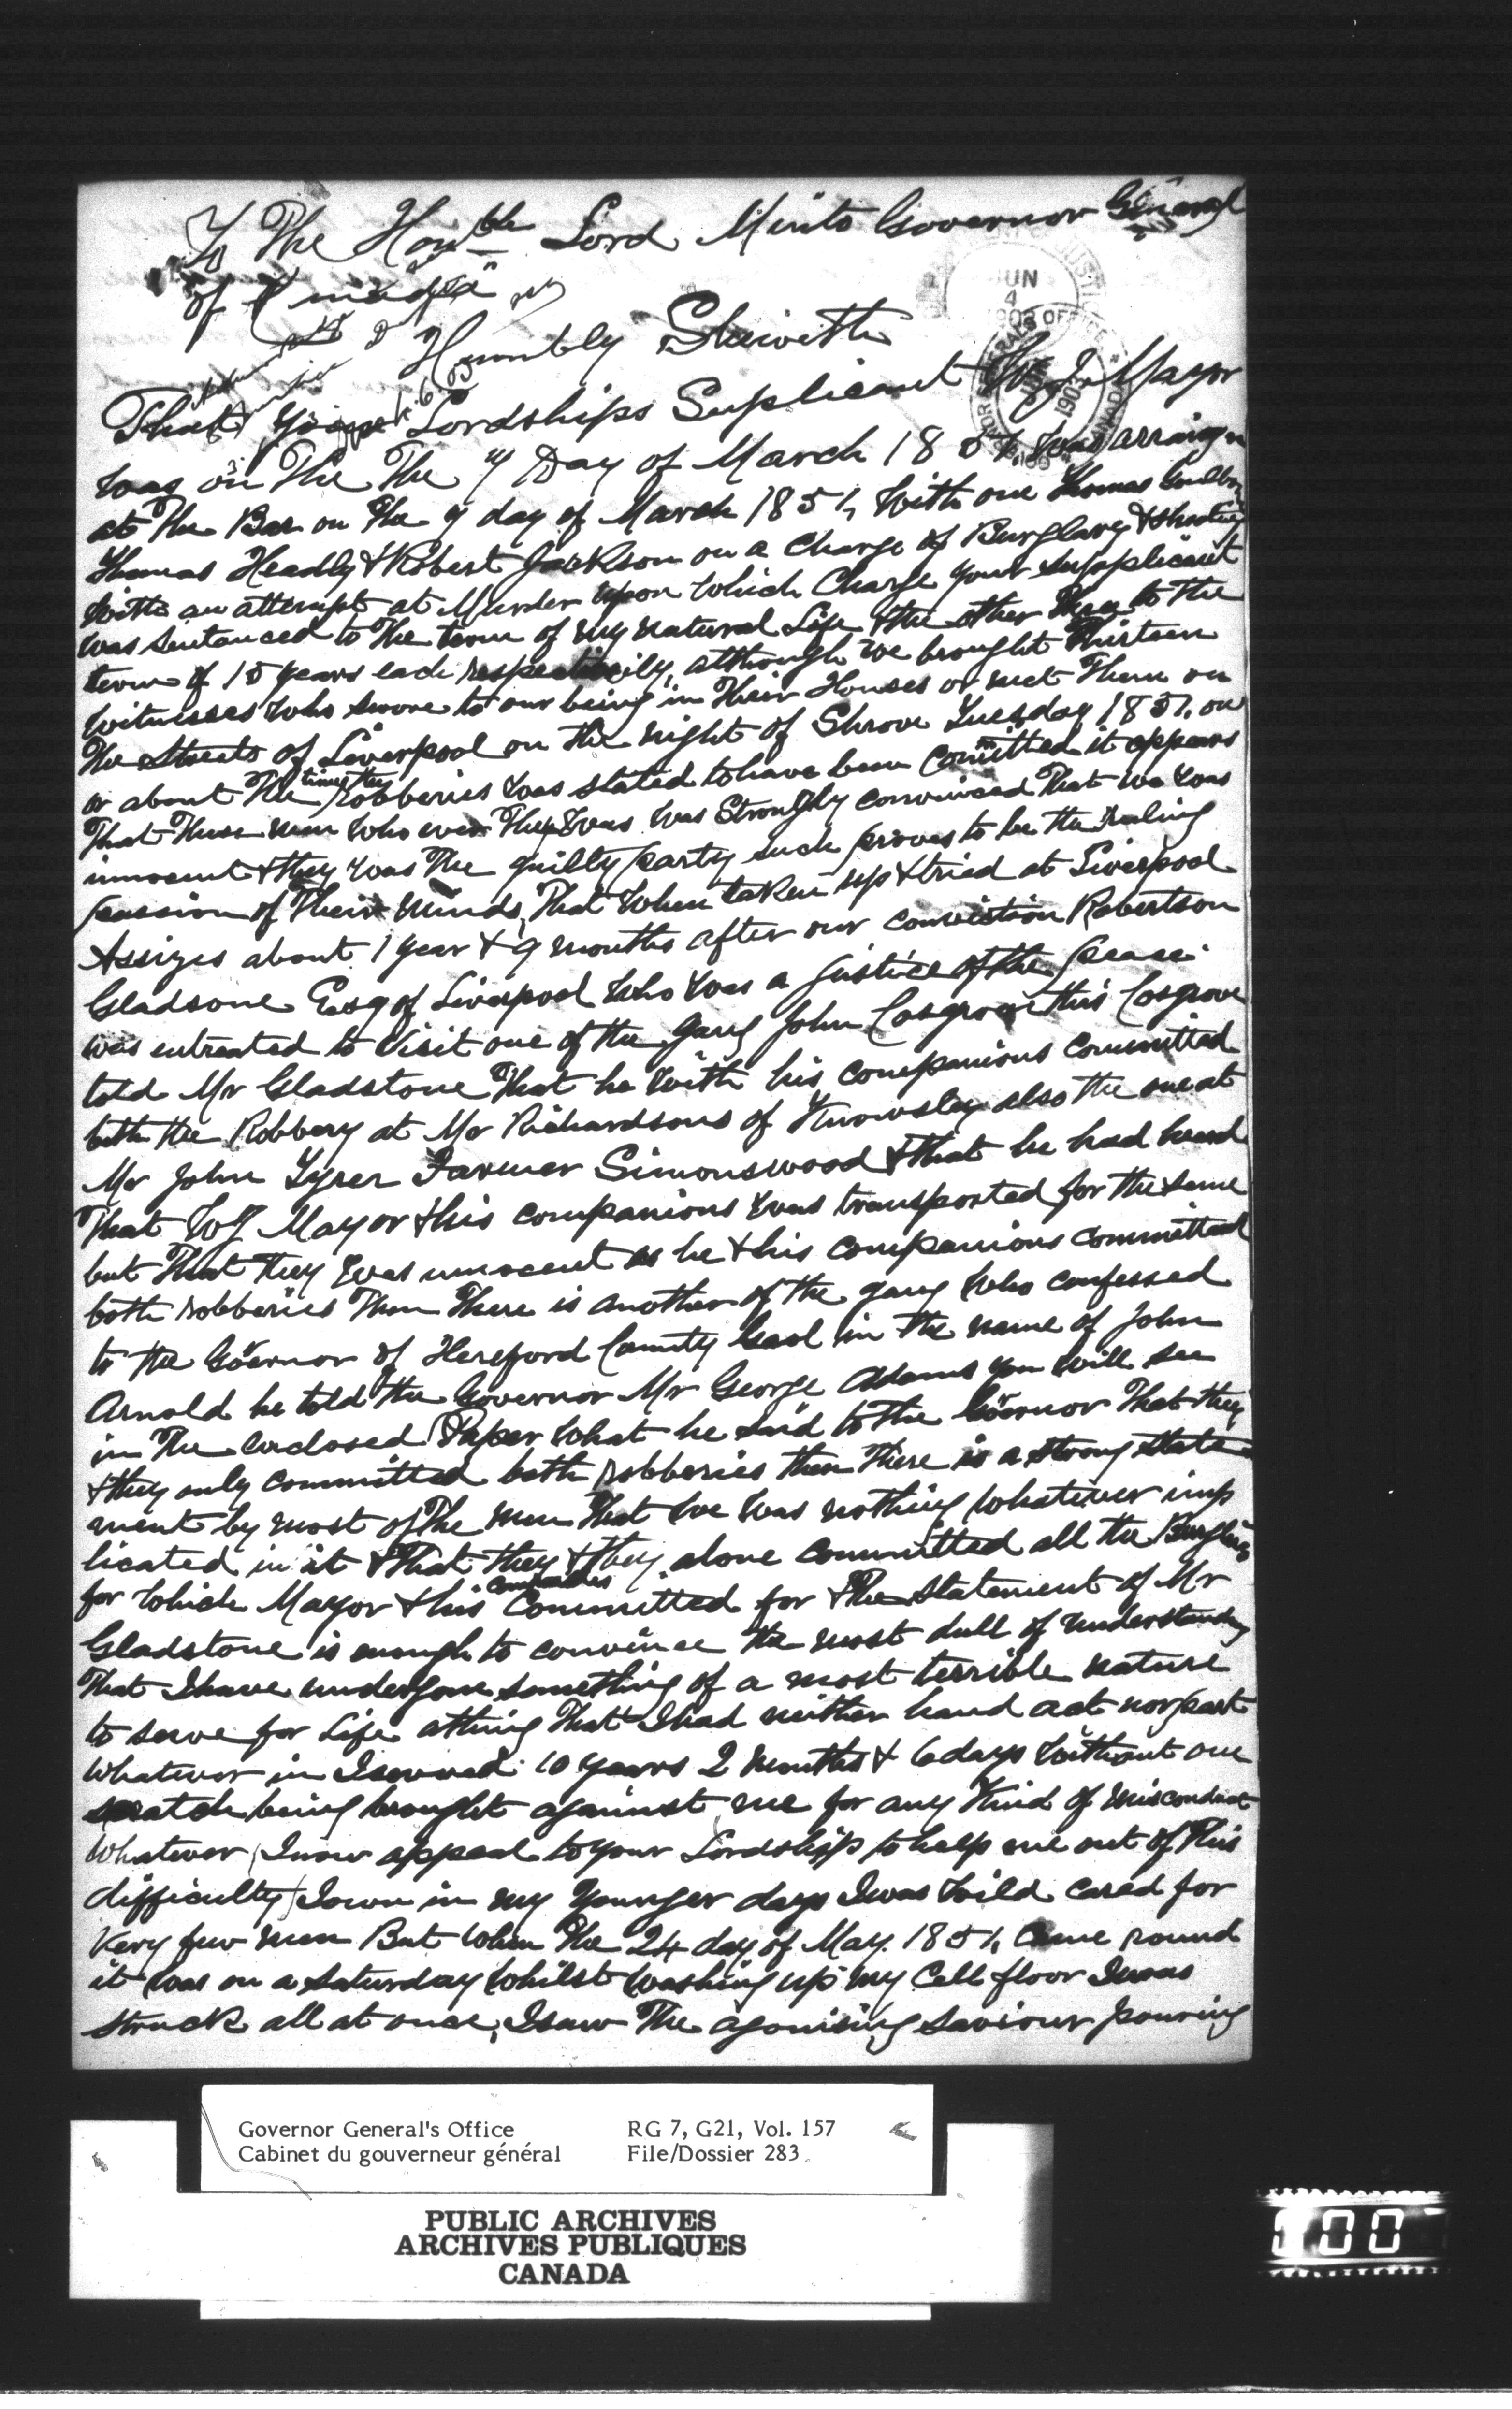 To The Honble Lord Minto Governor General
of Canada
Humbly Sheweth
That your Lordships Suplicant W J Mayor
was on The The 9 Day of March 1851, was arraign
at The Bar on The 9 day of March 1851, With one Thomas
Thomas Headly & Robert Jackson on a Charge of Burglary & shooting
with an attempt at Murder upon Which Charge your supplicant
was sentanced to The term of my natural Life & the other Men to the
term of 10 years each respectively, although we brought Thirteen
Witnesses Who swore to our being in Their Houses or met Them on
The Streets of Liverpool on the night of Shrove Tuesday 1851, on
or about The time the Robberies Was stated to have been Committed it appears
That These men Who ever They Was Was Strongly convinced That we Was
innocent & they Was The guilty party such proves to be the Ruling
passion of Their Minds, That When taken up & tried at Liverpool
Assizes about 1 year & 9 months after our conviction Robertson
Gladsone Esq of Liverpool Who Was a Justice of the peace
was entreated to Visit one of the gang John Cosgrove this Cosgrove
told Mr Gladstone That he With his companions Committed
both the Robbery at Mr Richardsons of Knowsley also the one at
Mr John Tyrer Farmer Simonswood & that he had heard
That W J Mayor & his companions Was transported for the same
but That They Was innocent as he & his companions committed
both robberies Then There is another of the gang Who confessed
to the Goernor of Hereford County Gaol in the name of John
Arnold he told the Governor Mr George Adams you Will see
in The enclosed Paper What he said to The Goernor That they
& they only committed both robberies then There is a strong state
ment by most of The men That We Was nothing Whatever imp
licated in it & That they & they alone committed all the Burglaries
for Which Mayor & his Comrades Committed for & The Statement of Mr
Gladstone is enough to convince the most dull of understanding
That I have undergone something of a most terrible nature
to serve for Life athing That I had neither hand act nor part
Whatever in I served 10 years 2 Months & 6 days Without one
scratch being brought against me for any Kind of Misconduct
Whatever I now appeal to your Lordship to help me out of This
difficulty I own in my younger days I was Wild cared for
Very few men But When The 24 day of May 1851, Came round
it Was on a Saturday Whilst Washing up my Cell floor I was
struck all at once, I saw The agonising Saviour pouring
JUN
4
1903
Governor General's Office
Cabinet du gouverneur général
RG 7, G21, Vol. 157
File/Dossier 283
PUBLIC ARCHIVES
ARCHIVES PUBLIQUES
CANADA
00